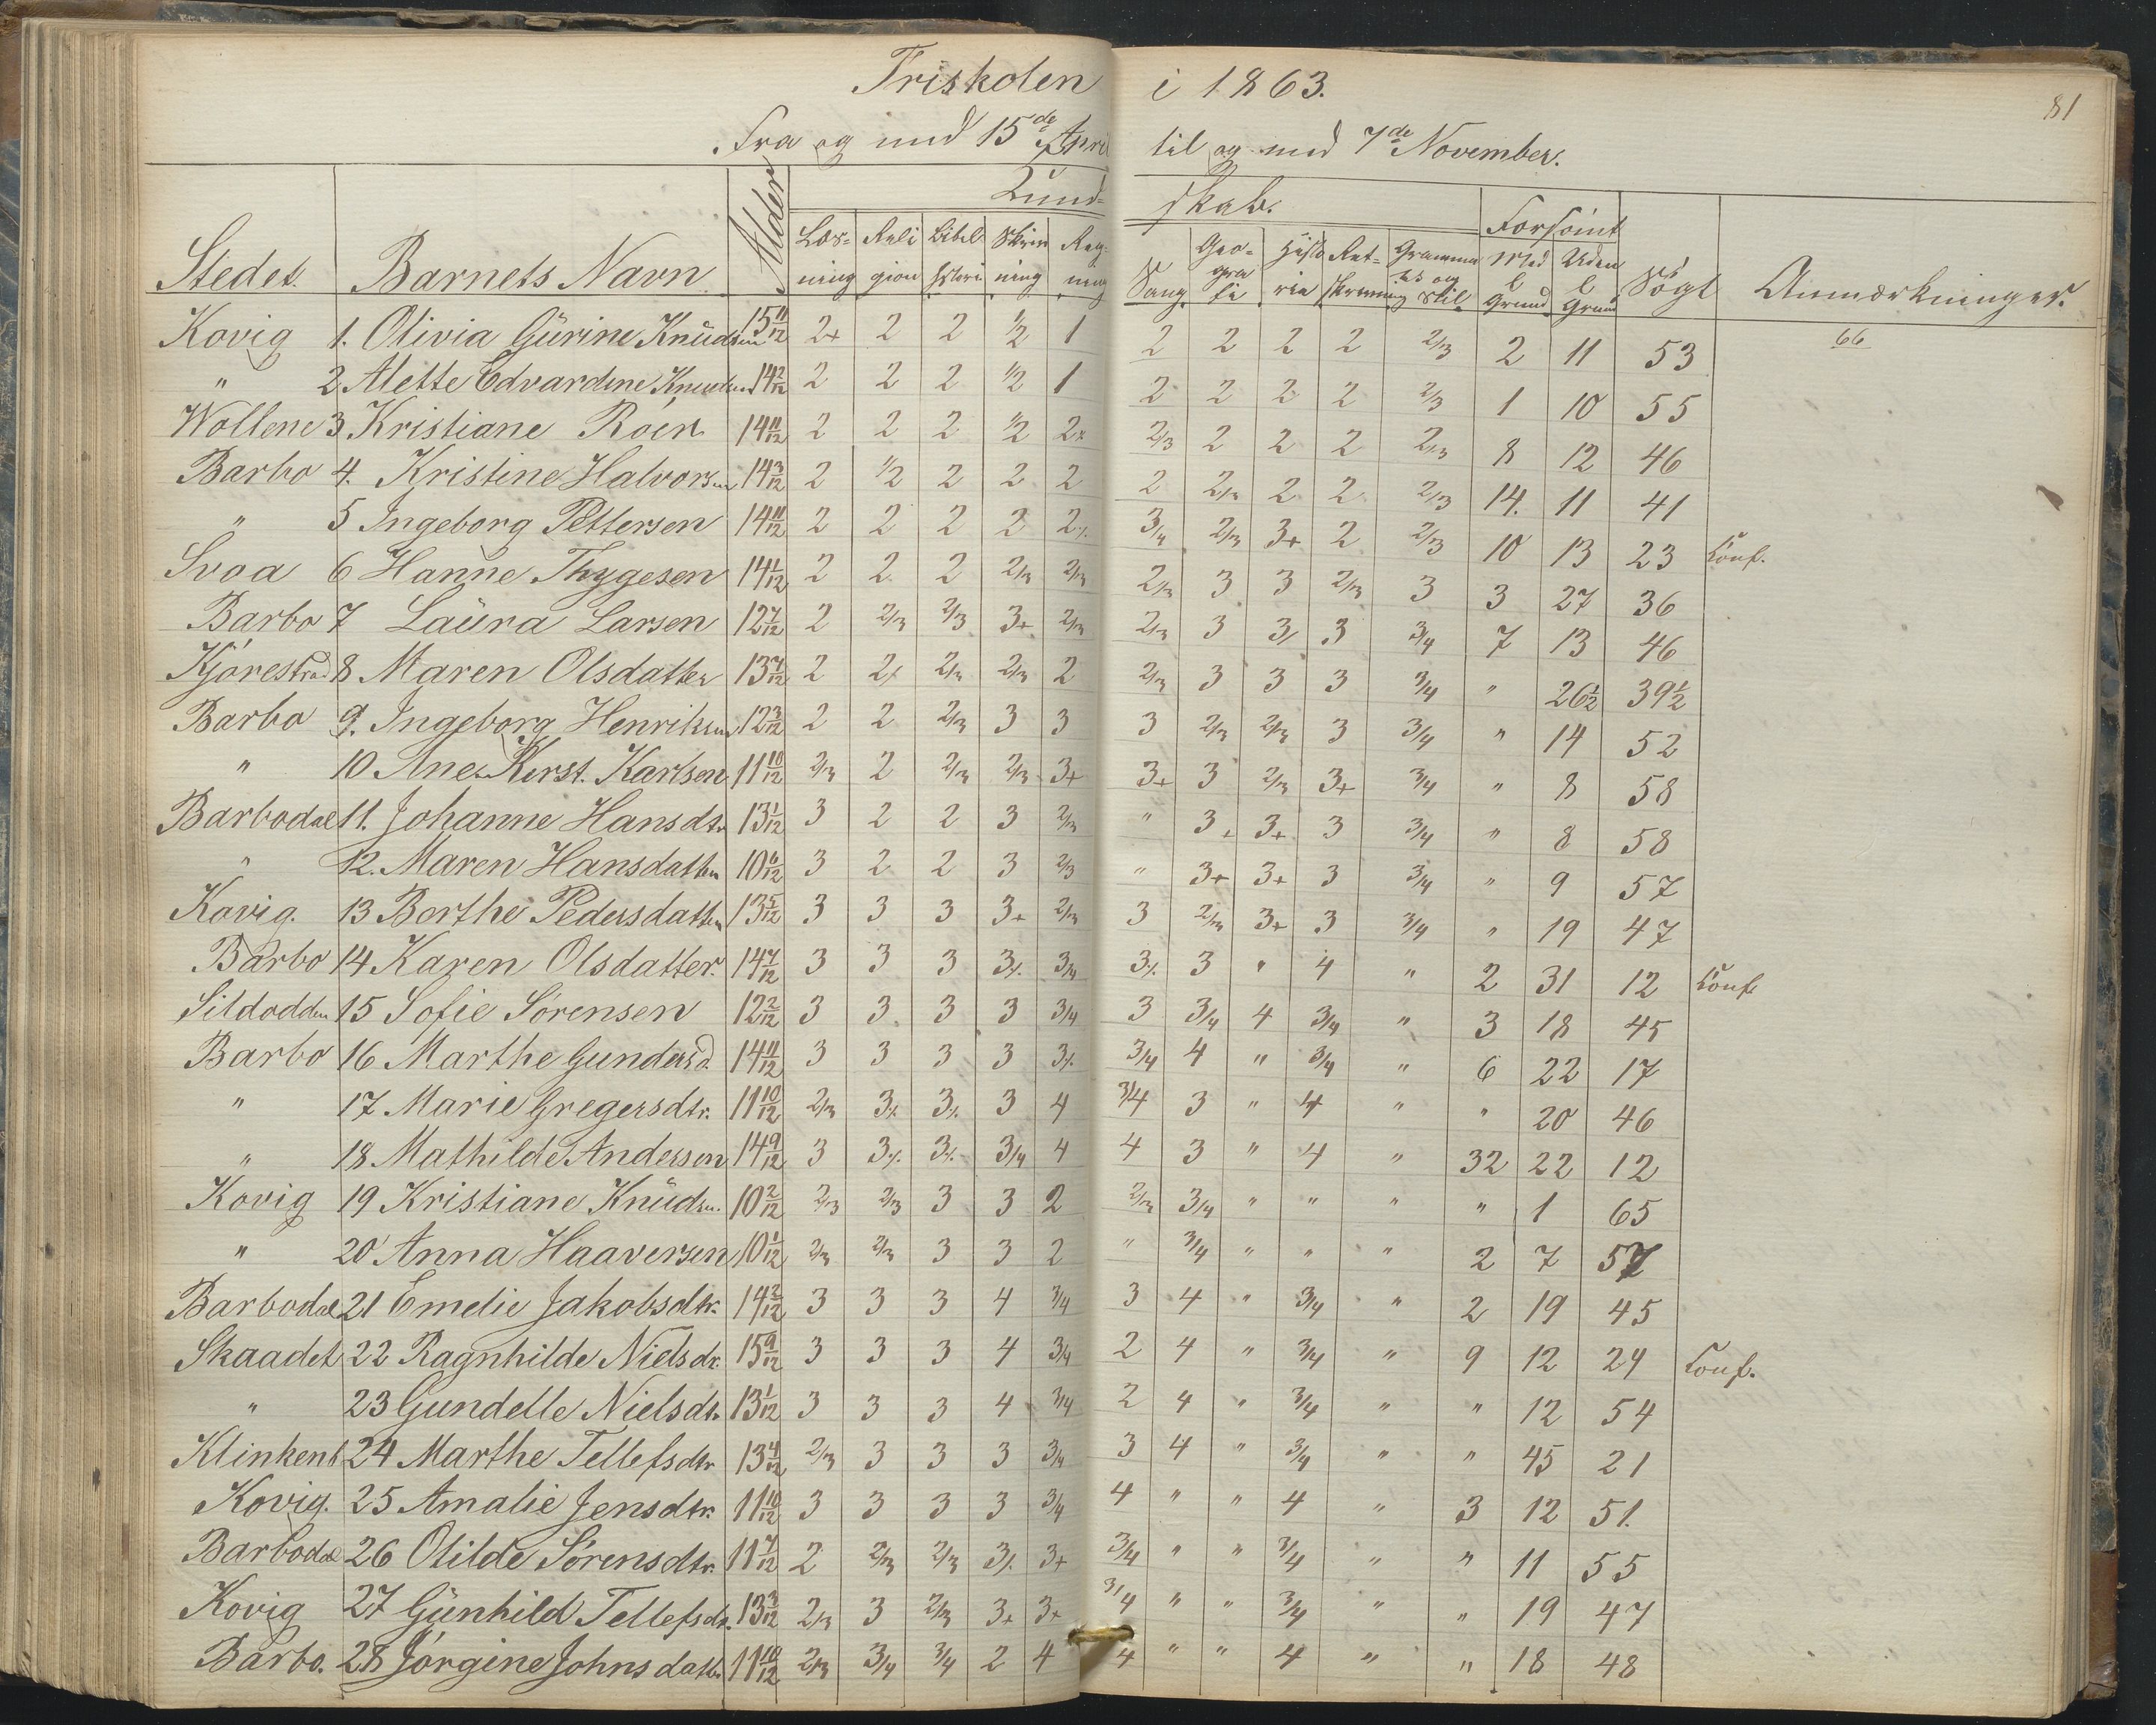 Friskolen i 1863.
81
Fra og med 15de April til og med 7de November.
Kund- skab.
Stedet. Barnets Navn. Alder Læs- ning Reli gion Bibel- histori Skriv ning Reg- ning Sang Geo- gra fi Histo rie Ret- skrivning Gramma tik og Stil Forsömt Med Grund Uden Grund Sögt Anmærkninger.
Kovig 1. Olivia Gürine Knudsen 15 11/12 2+ 2 2 1/2 1 2 2 2 2 2/3 2 11 53 66
" 2 Alette Edvardine Knudsen 14 2/12 2 2 2 1/2 1 2 2 2 2 2/3 1 10 55
Wollene 3 Kristiane Röer 14 11/12 2 2 2 1/2 2+ 2/3 2 2 2 2/3 8 12 46
Barbo 4. Kristine Halvorsen 14 3/12 2 1/2 2 2 2 2 2/3 2 2 2/3 14. 11 41
" 5 Ingeborg Pettersen 14 11/12 2 2 2 2 2% 3/4 2/3 3+ 2 2/3 10 13 23 Conf.
Svoa 6 Hanne Thygesen 14 1/12 2 2 2 2/3 2/3 2/3 3 3 2/3 3 3 27 36
Barbo 7 Laüra Larsen 12 7/12 2 2/3 2/3 3+ 2/3 2/3 3 3/ 3 3/4 7 13 46
Kjörestrad 8 Maren Olsdatter 13 7/12 2 2+ 2/3 2/3 2 2/3 3 3 3 3/4 " 26 1/2 39 1/2
Barbo 9. Ingeborg Henriksen 12 3/12 2 2 2/3 3 3 3 2/3 2/3 3 3/4 " 14 52
" 10 Ane Kirst. Karlsen 11 10/12 2/3 2 2/3 2/3 3+ 3+ 3 2/3 3+ 3/4 " 8 58
Barbodal 11. Johanne Hansdtr 13 1/12 3 2 2 3 2/3 " 3+ 3+ 3 3/4 " 8 58
" 12. Maren Hansdatter 10 6/12 3 2 2 3 2/3 " 3+ 3+ 3 3/4 " 9 57
Kovig. 13 Berthe Pedersdatter 13 5/12 3 3 3 3+ 2/3 3 2/3 3+ 3 3/4 " 19 47
Barbo 14 Karen Olsdatter. 14 7/12 3 3 3 3% 3/4 3% 3 " 4 " 2 31 12 Conf.
Sildodden 15 Sofie Sörensen 12 2/12 3 3 3 3 3/4 3 3/4 4 3/4 " 3 18 45
Barbo 16 Marthe Gundersd. 14 11/12 3 3 3 3 3% 3/4 4 " 3/4 " 6 22 17
" 17 Marie Gregersdtr. 11 10/12 2/3 3% 3% 3 4 3/4 3 " 4 " " 20 46
" 18 Mathilde Andersen 14 9/12 3 3% 3% 3/4 4 4 3 " 4 " 32 22 12
Kovig 19 Kristiane Knüdsn. 10 2/12 2/3 2/3 3 3 2 2/3 3/4 " " " " 1 65
" 20 Anna Haaversen 10 1/12 2/3 2/3 3 3 2 " 3/4 " " " 2 7 57
Barbodal 21 Emelie Jakobsdtr. 14 2/12 3 3 3 4 3/4 3 4 " 3/4 " 2 19 45
Skaadet 22 Ragnhilde Nielsdr. 15 9/12 3 3 3 4 3/4 2 4 " 3/4 " 9 12 24 Conf.
" 23 Gundelle Nielsdtr. 13 1/12 3 3 3 4 3/4 2 4 " 3/4 " " 12 54
Klinkenb 24 Marthe Tellefsdtr 13 4/12 2/3 3 3 3 3/4 3 4 " 3/4 " " 45 21
Kovig. 25 Amalie Jensdtr. 11 10/12 3 3 3 3 3/4 4 " " 4 " 3 12 51.
Barbodal 26 Olilde Sörensdtr. 11 7/12 2 2/3 2/3 3% 3+ 3/4 " " 3/4 " " 11 55
Kovig 27 Günhild Tellefsdtr. 13 3/12 2/3 3 2/3 3+ 3+ 3/4 " " 3/4 " " 19 47
Barbo. 28 Jörgine Johnsdatter 11 10/12 2/3 3/4 3/4 2 4 4 " " 4 " " 18 48